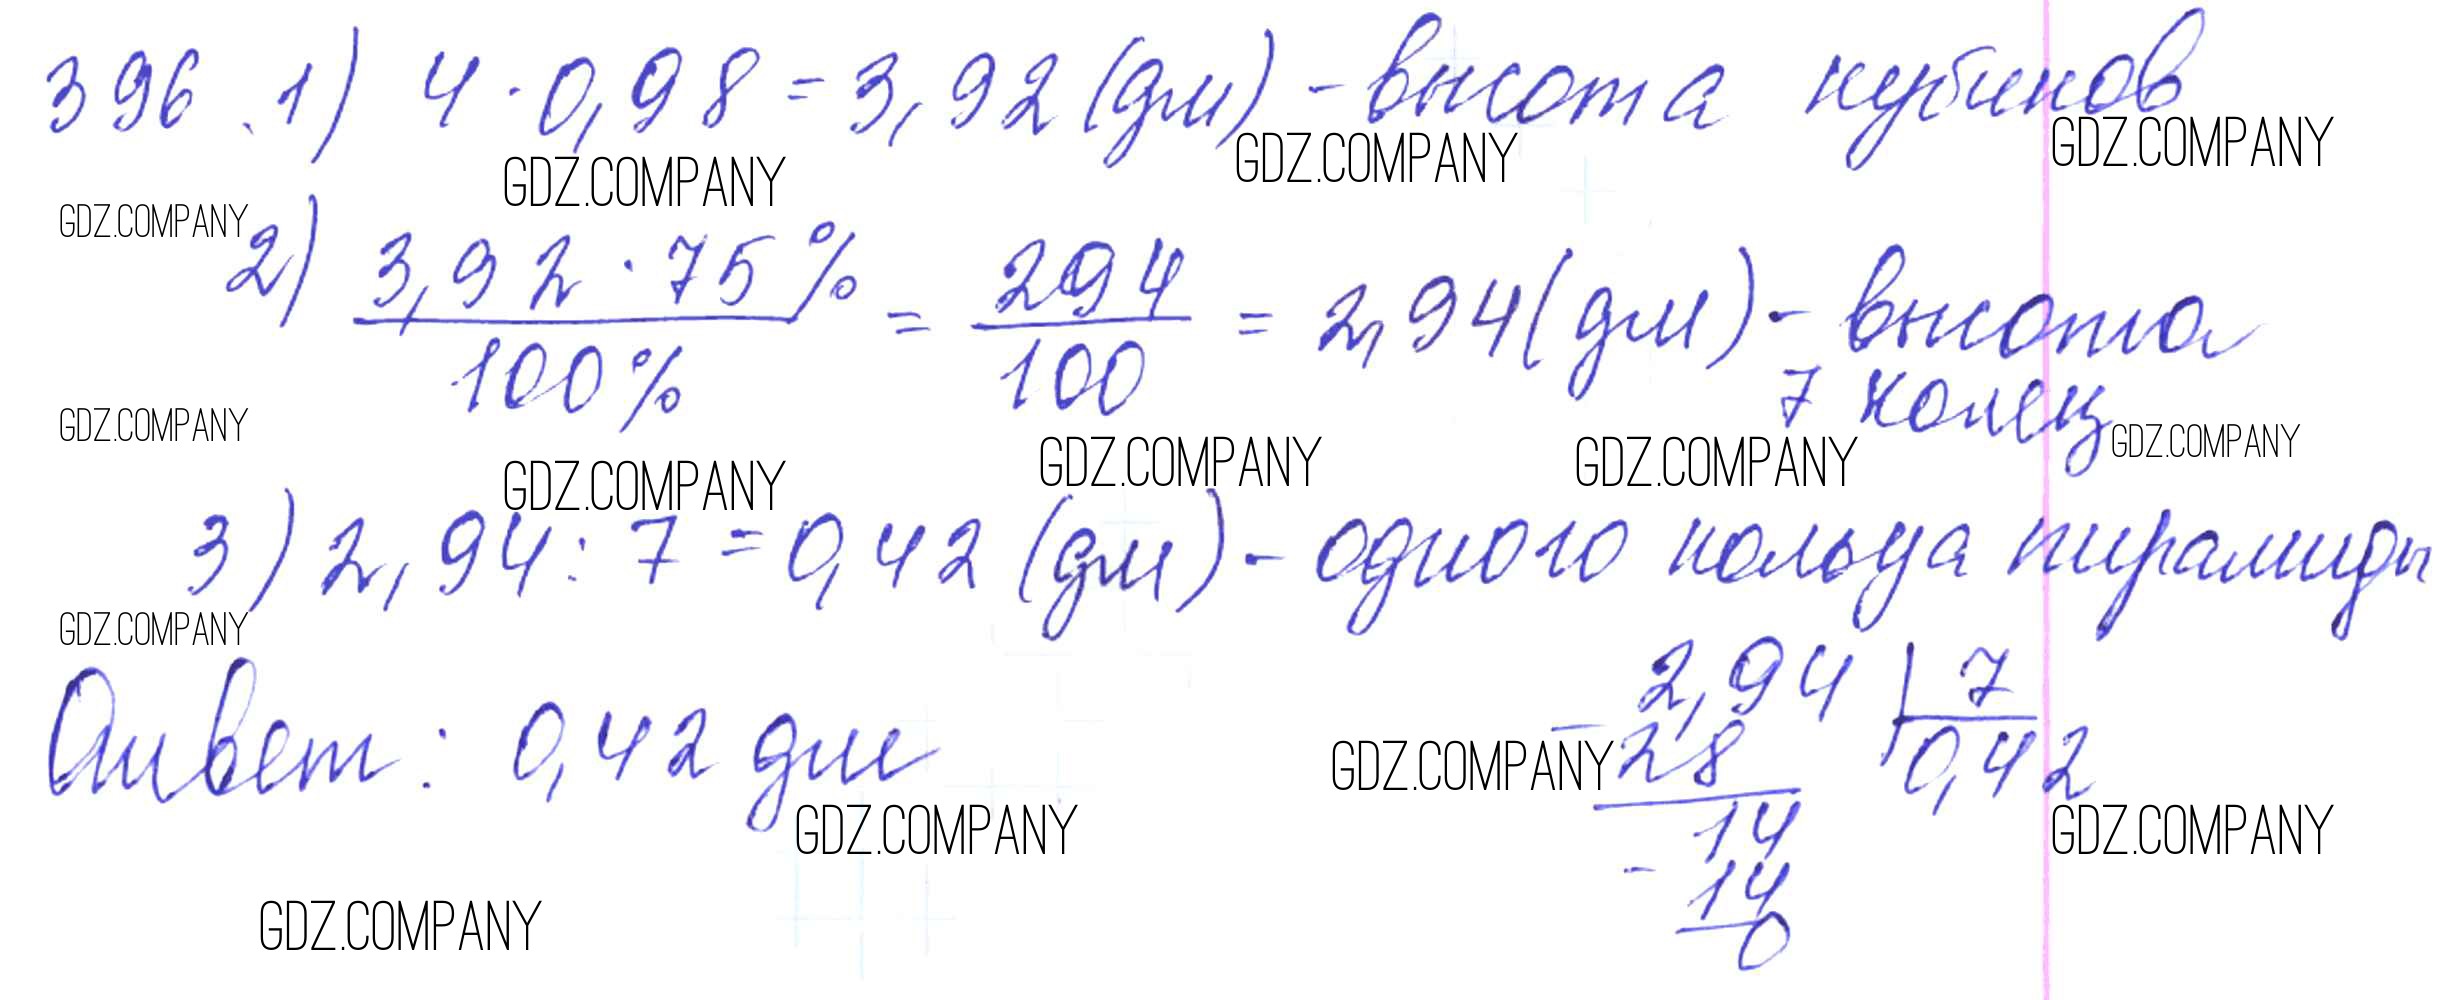 396. 1) 4 · 0,98 = 3,92 (дм) - высота кубиков
GDZ.COMPANY GDZ.COMPANY GDZ.COMPANY
GDZ.COMPANY
2) 3,92 · 75% / 100% = 294 / 100 = 2,94 (дм) - высота
7 колец
GDZ.COMPANY GDZ.COMPANY
GDZ.COMPANY GDZ.COMPANY GDZ.COMPANY
3) 2,94 : 7 = 0,42 (дм) - одного кольца пирамиды
GDZ.COMPANY
Ответ: 0,42 дм
2,94 | 7
- 28 0,42
GDZ.COMPANY
14
GDZ.COMPANY GDZ.COMPANY
- 14
0
GDZ.COMPANY